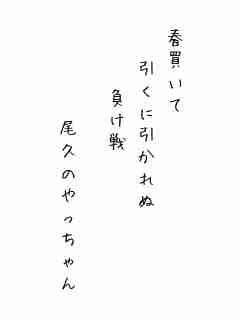 春買いて
引くに引かれぬ
負け戦
尾久のやっちゃん